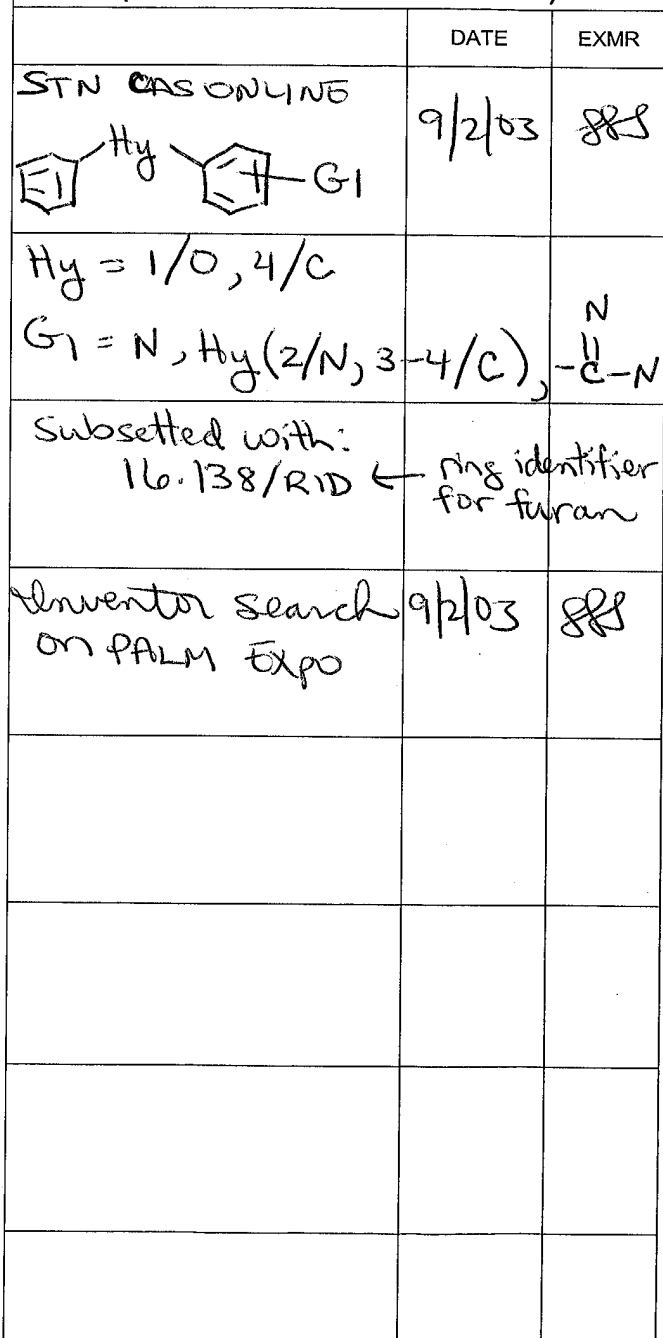 DATE EXMR
STN CAS ONLINE
9/2/03
Hy
G1
Hy = 1/O, 4/C
G1 = N, Hy(2/N, 3-4/C),
N
-C-N
Subsetted with:
16.138/RID ← ring identifier
for furan
Inventor search 9/2/03
on PALM Expo